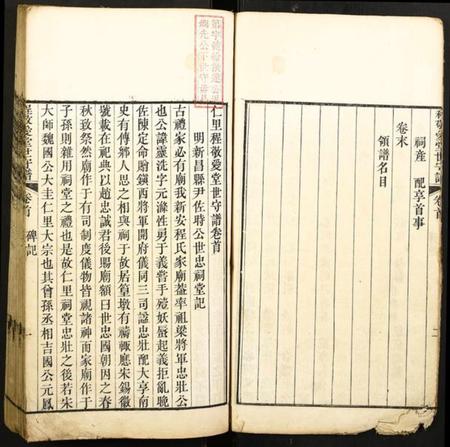 祠產 配享首事
卷末
領譜名目
卷首
仁里程敬愛堂世守譜卷首
明新昌縣尹佐時公世忠祠堂記
古禮家必有廟我新安程氏家廟蓋率祖梁將軍忠壯公
也公諱靈洗字元滌性勇于義嘗手殪妖蜃起義拒亂晚
佐陳定命勛鎮西將軍開府儀同三司諡忠壯配大享南
史有傳鄉人思之相與祠于故居篁墩有禱輒應朱錫徽
號載在祀典以趙忠誠君後賜廟額曰世忠國朝因之春
秋致祭然廟作于有司制度儀物皆視諸神而家廟作于
子孫則雜用祠堂之禮也是故仁里祠堂忠壯之後若宋
大師魏國公大圭仁里大宗也其曾孫丞相吉國公元鳳
程敬愛堂世守譜 卷首 碑記 一